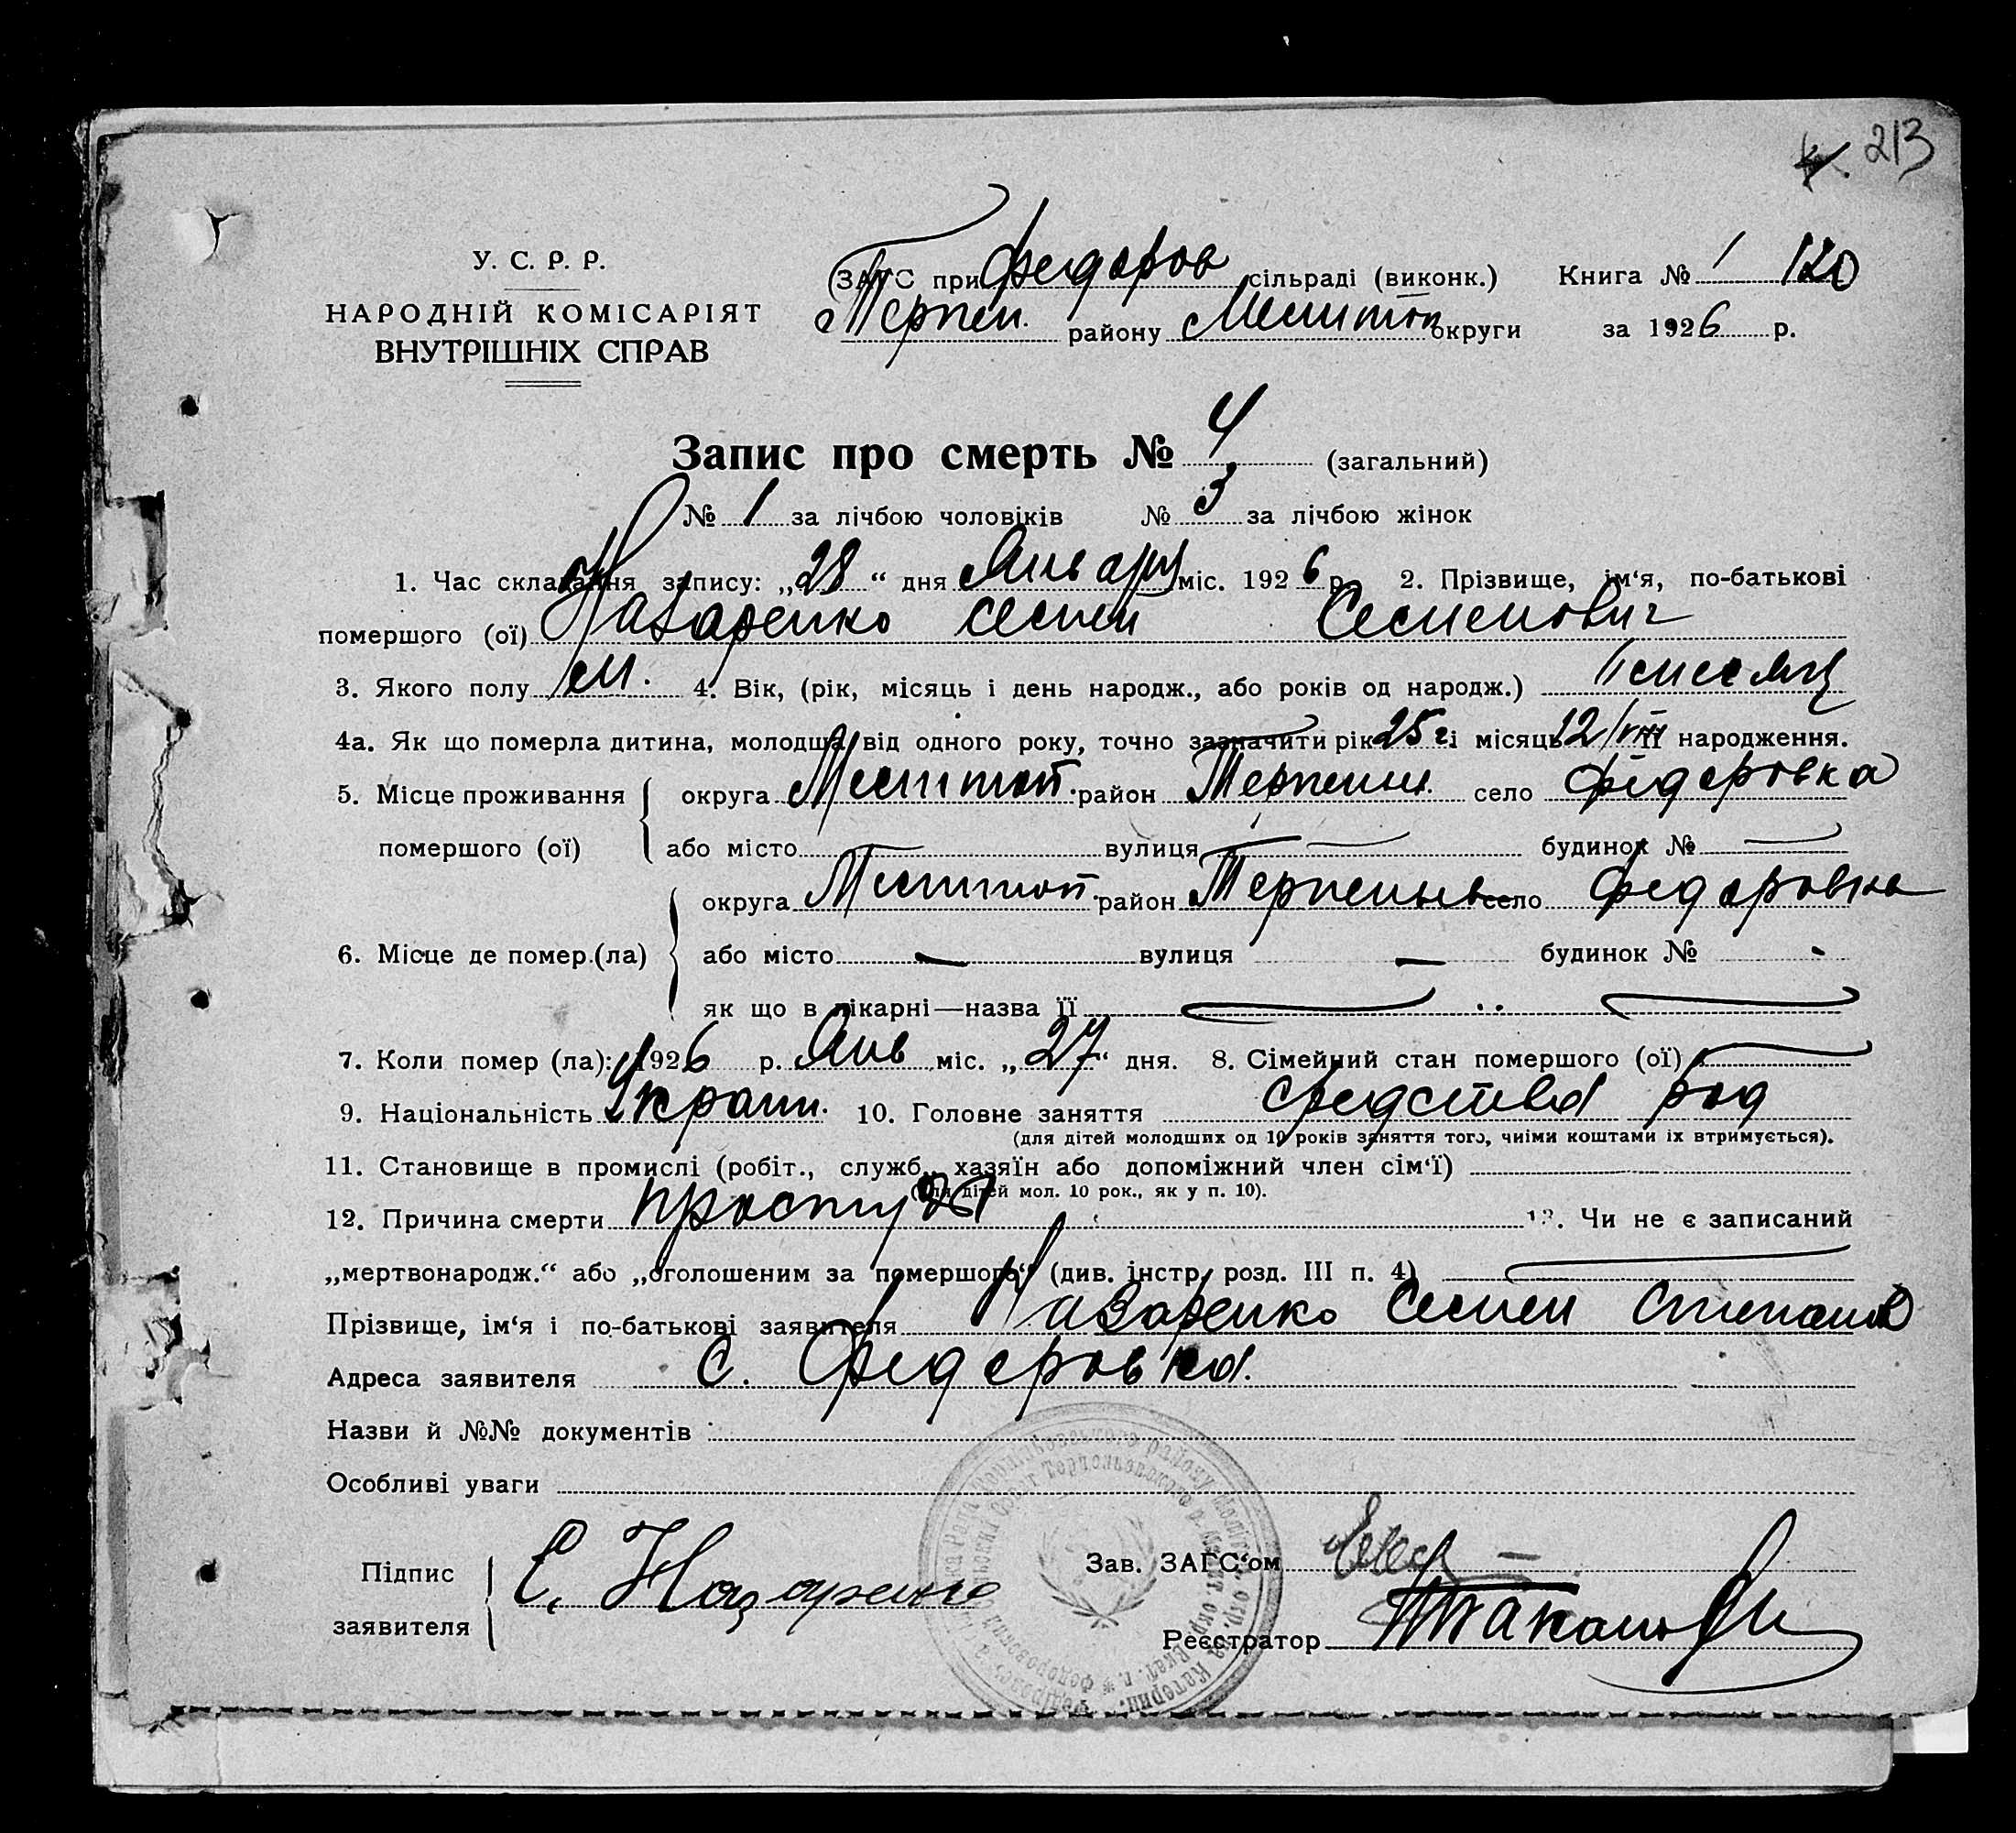 213
У. С. Р. Р.
НАРОДНІЙ КОМІСАРІЯТ
ВНУТРІШНІХ СПРАВ
(ЗАГС при Федоров сільраді (виконк.) Книга № 1 120
Терпен. району Мелитоп округи за 1926 р.
Запис про смерть № 4 (загальний)
№ 1 за лічбою чоловіків № 3 за лічбою жінок
1. Час складання запису: „28“ дня Января міс. 1926 р. 2. Прізвище, ім‘я, по-батькові
помершого (ої) Назаренко Семен Семенович
3. Якого полу м. 4. Вік, (рік, місяць і день народж., або років од народж.) месяц
4а. Як що померла дитина, молодша від одного року, точно зазначити рік 25 г. і місяць 12/VIII народження.
5. Місце проживання округа Мелитоп. район Терпеньев. село Федоровка
помершого (ої) або місто вулиця будинок №
округа Мелитоп. район Терпеньев село Федоровка
6. Місце де помер.(ла) або місто вулиця будинок №
як що в лікарні—назва її
7. Коли помер (ла): 1926 р. Янв міс. „27“ дня. 8. Сімейний стан помершого (ої)
9. Національність Украин. 10. Головне заняття средства род
(для дітей молодших од 10 років заняття того, чиїми коштами їх втримується).
11. Становище в промислі (робіт., служб., хазяїн або допоміжний член сім‘ї)
(для дітей мол. 10 рок., як у п. 10).
12. Причина смерти простуда 13. Чи не є записаний
„мертвонародж.“ або „оголошеним за помершого“ (див. інстр. розд. III п. 4)
Прізвище, ім‘я і по-батькові заявителя Назаренко Семен Степанов
Адреса заявителя с. Федоровка.
Назви й №№ документів
Особливі уваги
Підпис С. Назаренко Зав. ЗАГС‘ом
заявителя Реєстратор